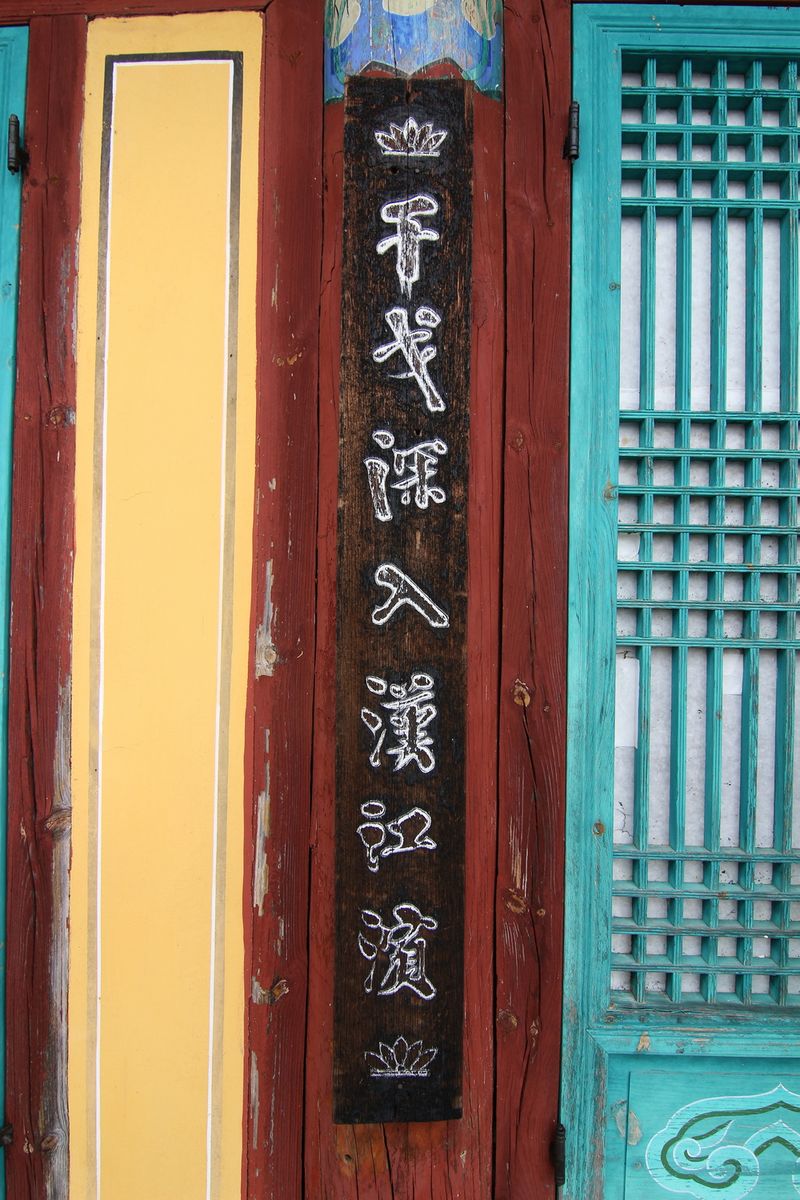 干戈深入漢江濱